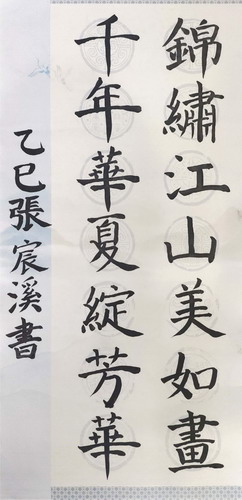 錦繡江山美如畫
千年華夏綻芳華
乙巳張宸溪書